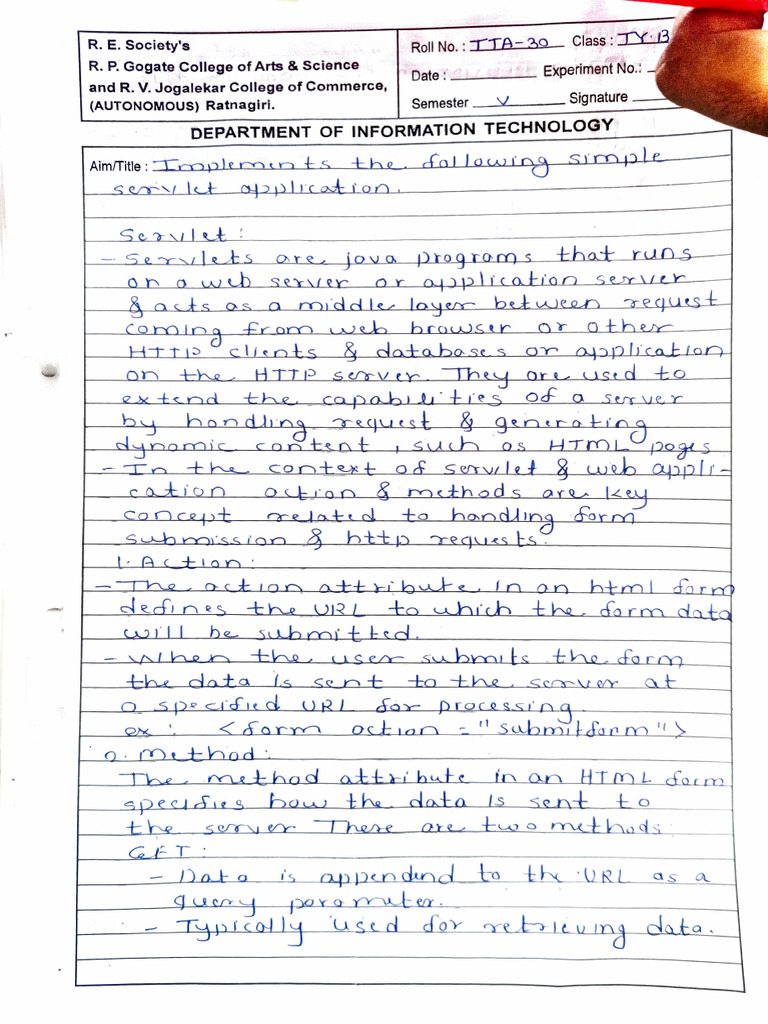 R. E. Society's
R. P. Gogate College of Arts & Science
and R. V. Jogalekar College of Commerce,
(AUTONOMOUS) Ratnagiri.
Roll No. : TTA-30 Class : TY.B
Date : Experiment No.:
Semester V Signature
DEPARTMENT OF INFORMATION TECHNOLOGY
Aim/Title : Implements the following simple
servlet application.
Servlet :
- Servlets are java programs that runs
on a web server or application server
& acts as a middle layer between request
coming from web browser or other
HTTP clients & databases or application
on the HTTP server. They are used to
extend the capabilities of a server
by handling request & generating
dynamic content, such as HTML pages
- In the context of servlet & web appli-
cation action & methods are key
concept related to handling form
submission & http requests.
1. Action :
- The action attribute in an html form
defines the URL to which the form data
will be submitted.
- When the user submits the form
the data is sent to the server at
a specified URL for processing.
ex : <form action = "submitform">
2. Method :
The method attribute in an HTML form
specifies how the data is sent to
the server There are two methods.
GET :
- Data is appendend to the URL as a
query parameter.
- Typically used for retrieving data.